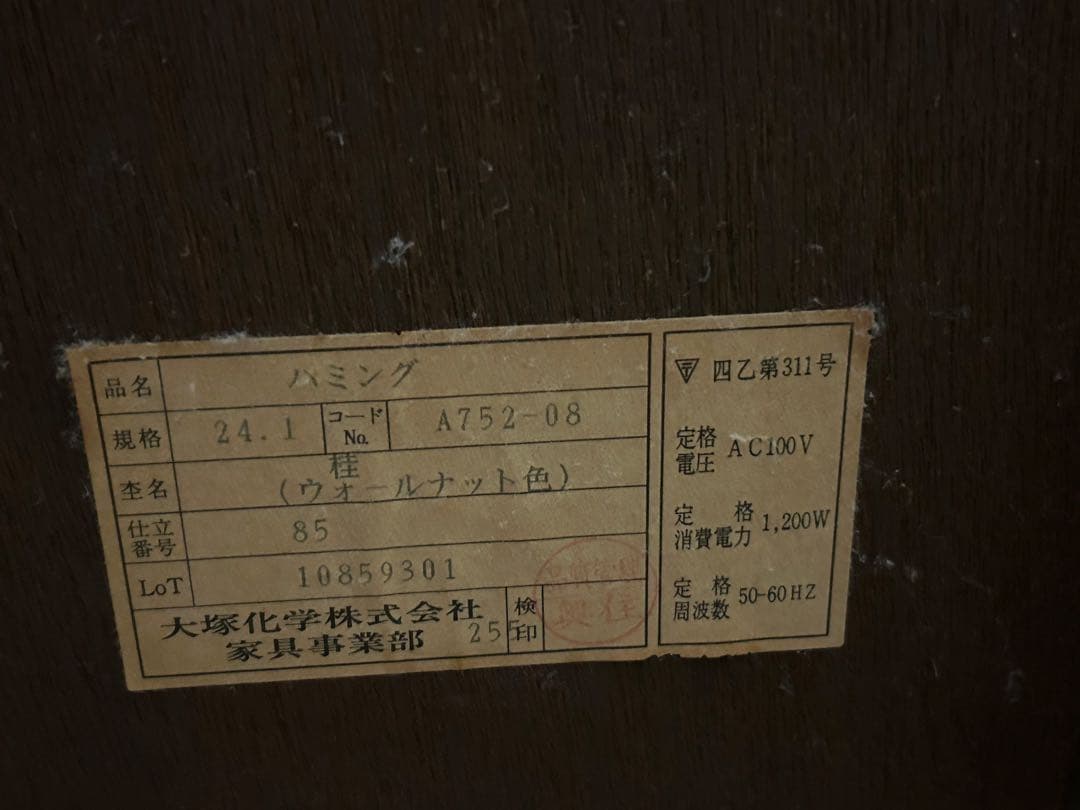 品名 ハミング
規格 24.1 コードNo. A752-08
杢名 桂
(ウォールナット色)
仕立番号 85
LoT 10859301
大塚化学株式会社
家具事業部 255
検印
四乙第311号
定格電圧 AC100V
定格消費電力 1,200W
定格周波数 50-60HZ